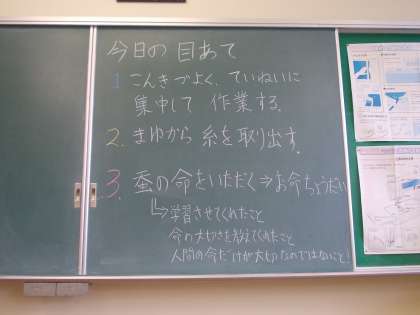 今日の目あて
1 こんきづよく、ていねいに
集中して 作業する。
2. まゆから 糸を取り出す。
3. 蚕の命をいただく⇒お命ちょうだい
↳学習させてくれたこと
命の大切さを教えてくれたこと
人間の命だけが大切なのではないこと!